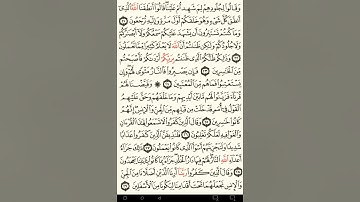 وَقَالُوا۟ لِجُلُودِهِمْ لِمَ شَهِدتُّمْ عَلَيْنَا قَالُوٓا۟ أَنطَقَنَا ٱللَّهُ ٱلَّذِىٓ
أَنطَقَ كُلَّ شَىْءٍ وَهُوَ خَلَقَكُمْ أَوَّلَ مَرَّةٍ وَإِلَيْهِ تُرْجَعُونَ ٢١
وَمَا كُنتُمْ تَسْتَتِرُونَ أَن يَشْهَدَ عَلَيْكُمْ سَمْعُكُمْ وَلَآ أَبْصَٰرُكُمْ
وَلَا جُلُودُكُمْ وَلَٰكِن ظَنَنتُمْ أَنَّ ٱللَّهَ لَا يَعْلَمُ كَثِيرًا مِّمَّا تَعْمَلُونَ ٢٢
وَذَٰلِكُمْ ظَنُّكُمُ ٱلَّذِى ظَنَنتُم بِرَبِّكُمْ أَرْدَىٰكُمْ فَأَصْبَحْتُم
مِّنَ ٱلْخَٰسِرِينَ ٢٣ فَإِن يَصْبِرُوا۟ فَٱلنَّارُ مَثْوًى لَّهُمْ وَإِن
يَسْتَعْتِبُوا۟ فَمَا هُم مِّنَ ٱلْمُعْتَبِينَ ٢٤ ۞ وَقَيَّضْنَا لَهُمْ
قُرَنَآءَ فَزَيَّنُوا۟ لَهُم مَّا بَيْنَ أَيْدِيهِمْ وَمَا خَلْفَهُمْ وَحَقَّ عَلَيْهِمُ
ٱلْقَوْلُ فِىٓ أُمَمٍ قَدْ خَلَتْ مِن قَبْلِهِم مِّنَ ٱلْجِنِّ وَٱلْإِنسِ إِنَّهُمْ
كَانُوا۟ خَٰسِرِينَ ٢٥ وَقَالَ ٱلَّذِينَ كَفَرُوا۟ لَا تَسْمَعُوا۟ لِهَٰذَا ٱلْقُرْءَانِ
وَٱلْغَوْا۟ فِيهِ لَعَلَّكُمْ تَغْلِبُونَ ٢٦ فَلَنُذِيقَنَّ ٱلَّذِينَ كَفَرُوا۟ عَذَابًا
شَدِيدًا وَلَنَجْزِيَنَّهُمْ أَسْوَأَ ٱلَّذِى كَانُوا۟ يَعْمَلُونَ ٢٧ ذَٰلِكَ جَزَآءُ
أَعْدَآءِ ٱللَّهِ ٱلنَّارُ لَهُمْ فِيهَا دَارُ ٱلْخُلْدِ جَزَآءًۢ بِمَا كَانُوا۟ بِـَٔايَٰتِنَا يَجْحَدُونَ
٢٨ وَقَالَ ٱلَّذِينَ كَفَرُوا۟ رَبَّنَآ أَرِنَا ٱلَّذَيْنِ أَضَلَّانَا مِنَ ٱلْجِنِّ
وَٱلْإِنسِ نَجْعَلْهُمَا تَحْتَ أَقْدَامِنَا لِيَكُونَا مِنَ ٱلْأَسْفَلِينَ ٢٩